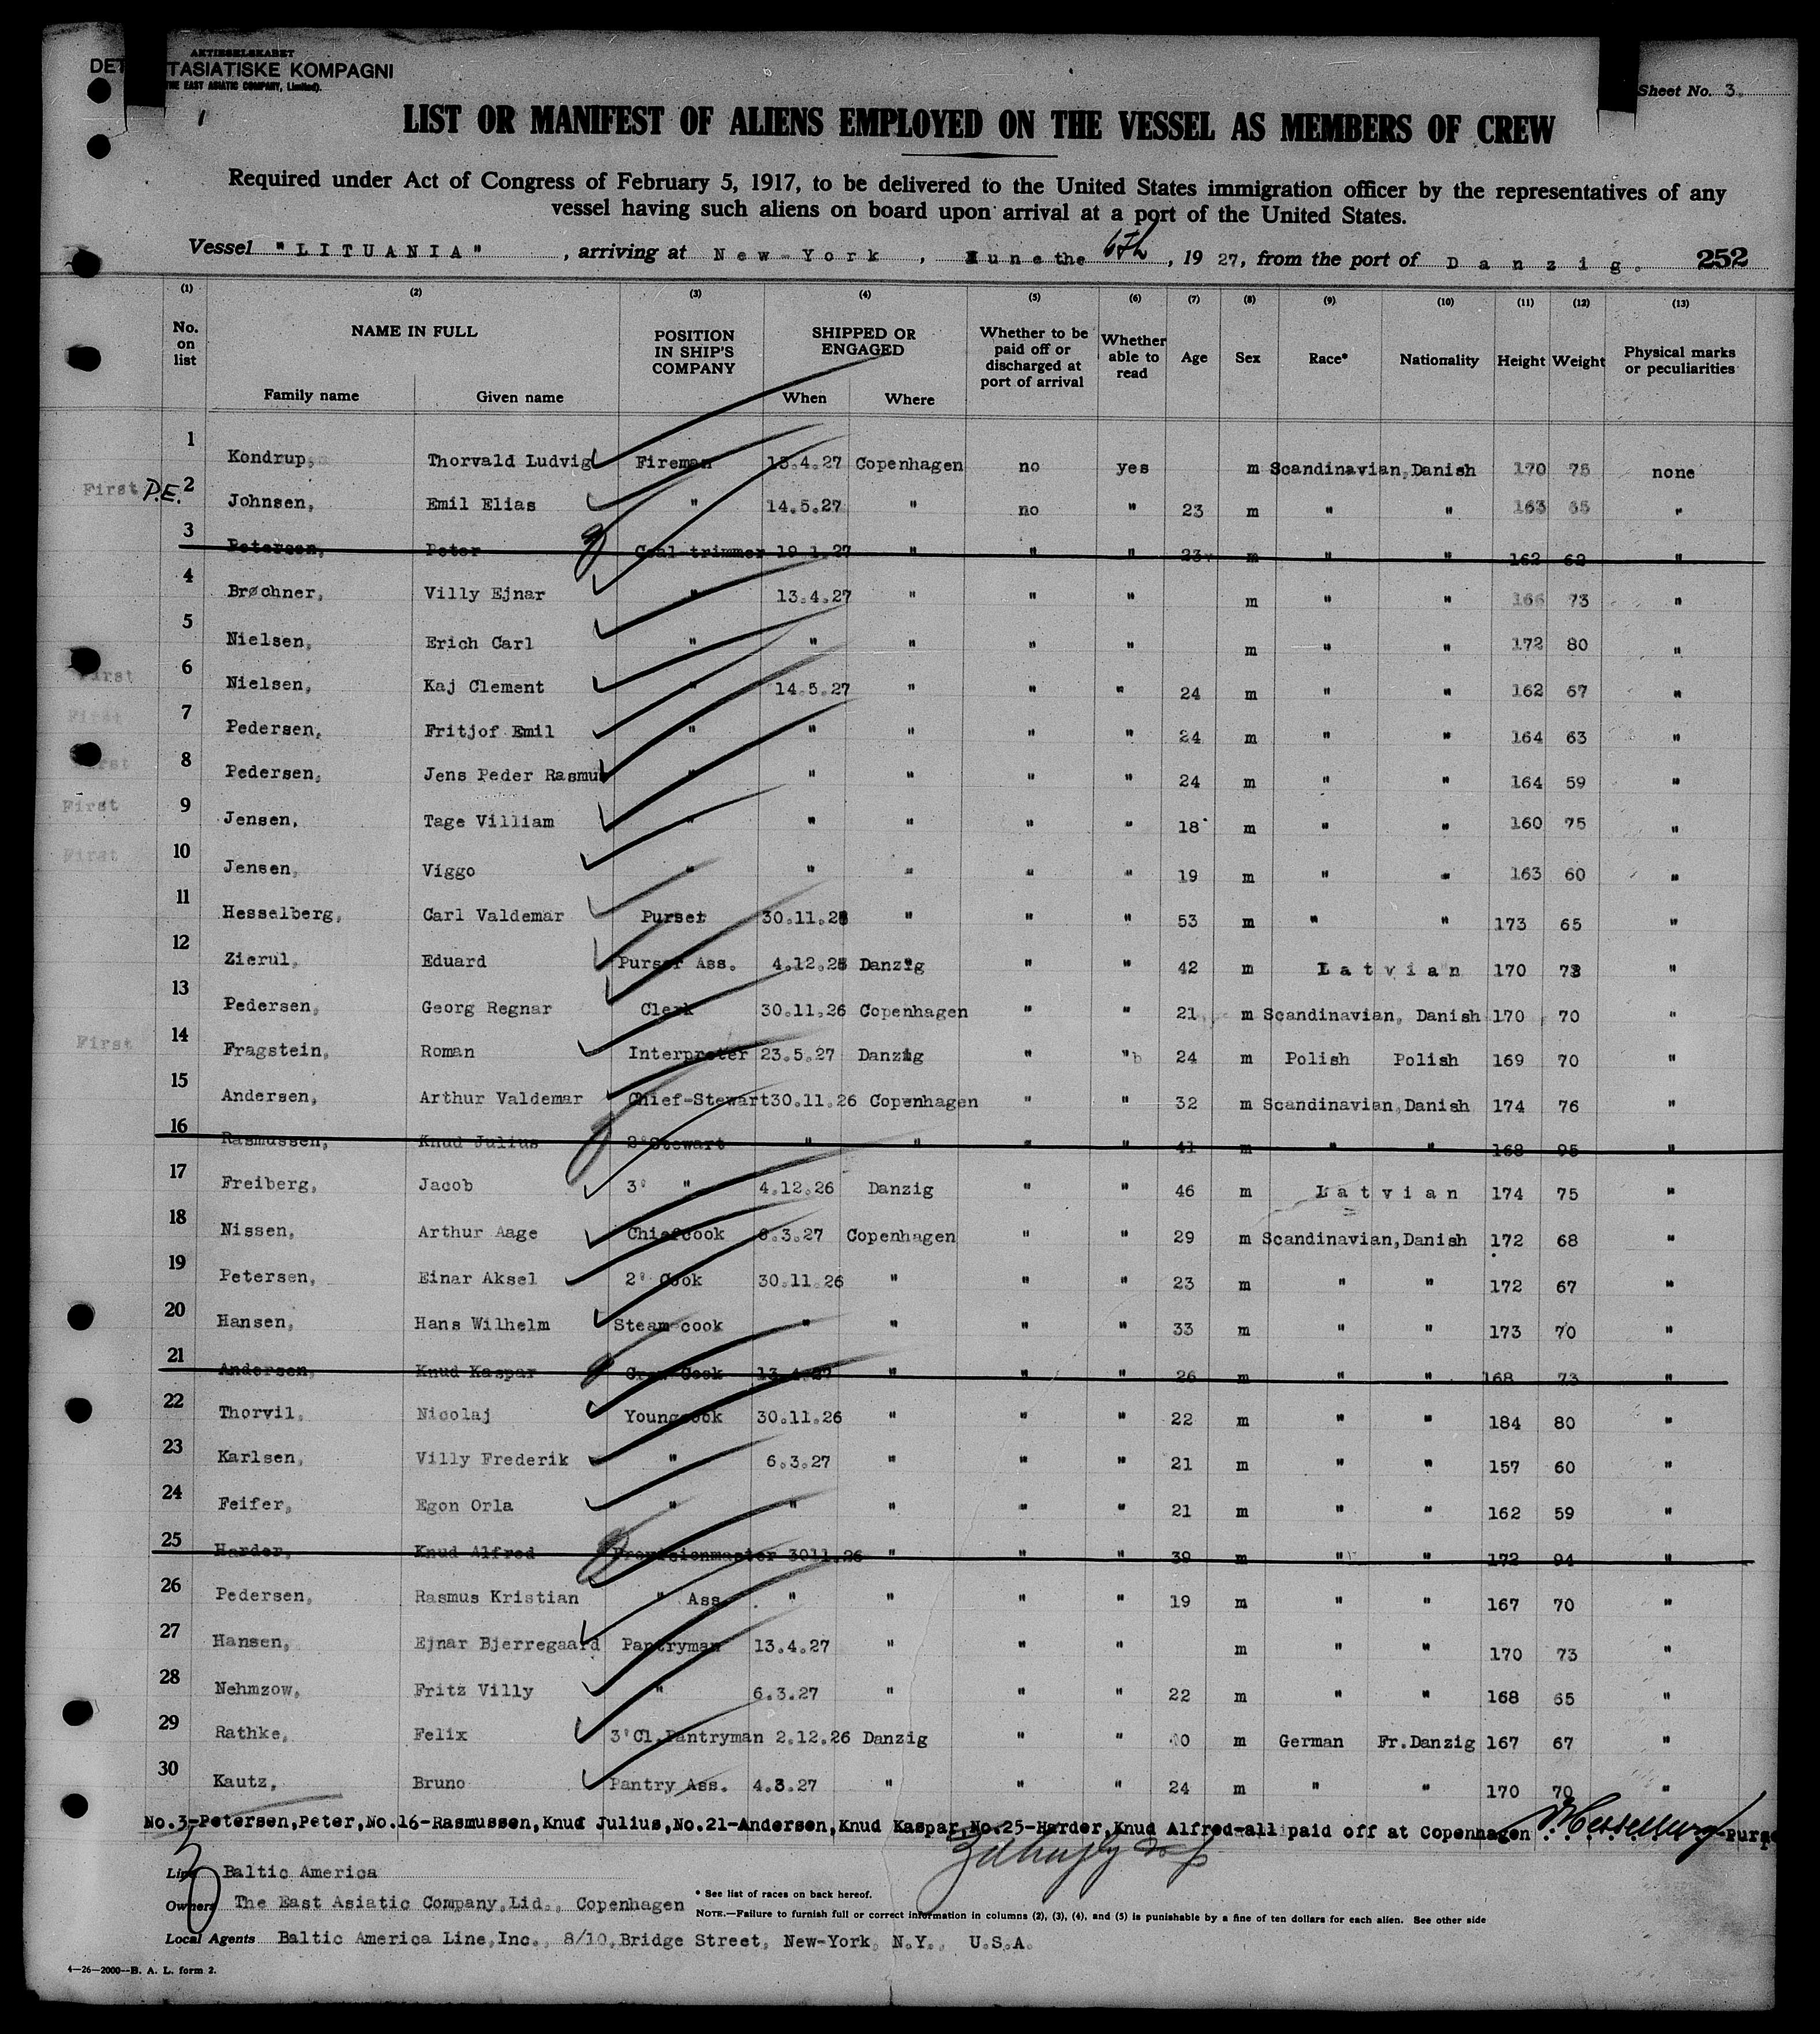 AKTIESELSKABET
DET TASIATISKE KOMPAGNI
THE EAST ASIATIC COMPANY, Limited).
Sheet No. 3.
LIST OR MANIFEST OF ALIENS EMPLOYED ON THE VESSEL AS MEMBERS OF CREW
Required under Act of Congress of February 5, 1917, to be delivered to the United States immigration officer by the representatives of any
vessel having such aliens on board upon arrival at a port of the United States.
Vessel "LITUANIA", arriving at New-York, June the 6th, 1927, from the port of Danzig. 252
(1) (2) (3) (4) (5) (6) (7) (8) (9) (10) (11) (12) (13)
No. on list NAME IN FULL Family name Given name POSITION IN SHIP'S COMPANY SHIPPED OR ENGAGED When Where Whether to be paid off or discharged at port of arrival Whether able to read Age Sex Race* Nationality Height Weight Physical marks or peculiarities
1 Kondrup, Thorvald Ludvig Fireman 13.4.27 Copenhagen no yes m Scandinavian, Danish 170 75 none
First P.E. 2 Johnsen, Emil Elias " 14.5.27 " no " 23 m " " 163 65 "
3 Petersen, Peter Coal-trimmer 19.1.27 " " " 23 m " " 162 62 "
4 Brøchner, Villy Ejnar " 13.4.27 " " " m " " 166 73 "
5 Nielsen, Erich Carl " " " " " m " " 172 80 "
First 6 Nielsen, Kaj Clement " 14.5.27 " " " 24 m " " 162 67 "
First 7 Pedersen, Fritjof Emil " " " " " 24 m " " 164 63 "
First 8 Pedersen, Jens Peder Rasmus " " " " " 24 m " " 164 59 "
First 9 Jensen, Tage Villiam " " " " " 18 m " " 160 75 "
First 10 Jensen, Viggo " " " " " 19 m " " 163 60 "
11 Hesselberg, Carl Valdemar Purser 30.11.2 " " " 53 m " " 173 65 "
12 Zierul, Eduard Purser Ass. 4.12.2 Danzig " " 42 m Latvian 170 73 "
13 Pedersen, Georg Regnar Clerk 30.11.26 Copenhagen " " 21 m Scandinavian, Danish 170 70 "
First 14 Fragstein, Roman Interpreter 23.5.27 Danzig " " 24 m Polish Polish 169 70 "
15 Andersen, Arthur Valdemar Chief-Stewart 30.11.26 Copenhagen " " 32 m Scandinavian, Danish 174 76 "
16 Rasmussen, Knud Julius 2' Stewart " " " " 41 m " " 168 95 "
17 Freiberg, Jacob 3' " 4.12.26 Danzig " " 46 m Latvian 174 75 "
18 Nissen, Arthur Aage Chiefcook 6.3.27 Copenhagen " " 29 m Scandinavian, Danish 172 68 "
19 Petersen, Einar Aksel 2' Cook 30.11.26 " " " 23 m " " 172 67 "
20 Hansen, Hans Wilhelm Steam-cook " " " " 33 m " " 173 70 "
21 Andersen, Knud Kaspar Crew Cook 13.4.27 " " " 26 m " " 168 73 "
22 Thorvil, Nicolaj Youngcook 30.11.26 " " " 22 m " " 184 80 "
23 Karlsen, Villy Frederik " 6.3.27 " " " 21 m " " 157 60 "
24 Feifer, Egon Orla " " " " " 21 m " " 162 59 "
25 Harder, Knud Alfred Provisionmaster 3011.26 " " " 39 m " " 172 94 "
26 Pedersen, Rasmus Kristian " Ass. " " " " 19 m " " 167 70 "
27 Hansen, Ejnar Bjerregaard Pantryman 13.4.27 " " " m " " 170 73 "
28 Nehmzow, Fritz Villy " 6.3.27 " " " 22 m " " 168 65 "
29 Rathke, Felix 3' Cl. Pantryman 2.12.26 Danzig " " m German Fr.Danzig 167 67 "
30 Kautz, Bruno Pantry Ass. 4.3.27 " " " 24 m " " 170 70 "
No.3-Petersen,Peter,No.16-Rasmussen,Knud Julius,No.21-Andersen,Knud Kaspar,No.25-Harder,Knud Alfred-all paid off at Copenhagen Hesselberg -Purse
Line Baltic America
Owners The East Asiatic Company,Lid., Copenhagen
* See list of races on back hereof.
NOTE.—Failure to furnish full or correct information in columns (2), (3), (4), and (5) is punishable by a fine of ten dollars for each alien. See other side
Local Agents Baltic America Line,Inc., 8/10,Bridge Street, New-York, N.Y., U.S.A.
4—26—2000—B. A. L. form 2.